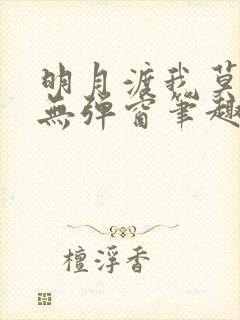 明月渡我莫
無彈窗筆趣
檀浮香